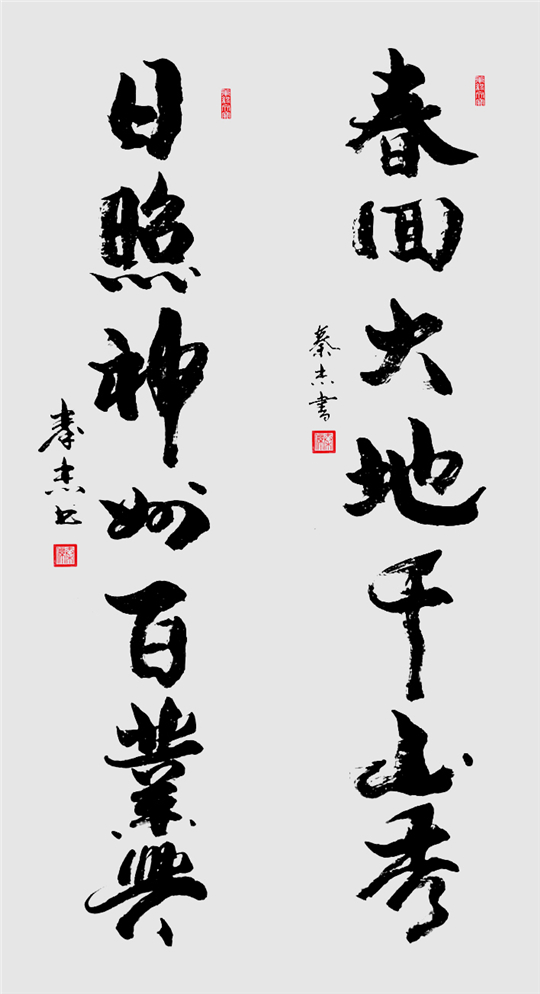 春回大地千山秀
秦杰書
日照神州百業興
秦杰书